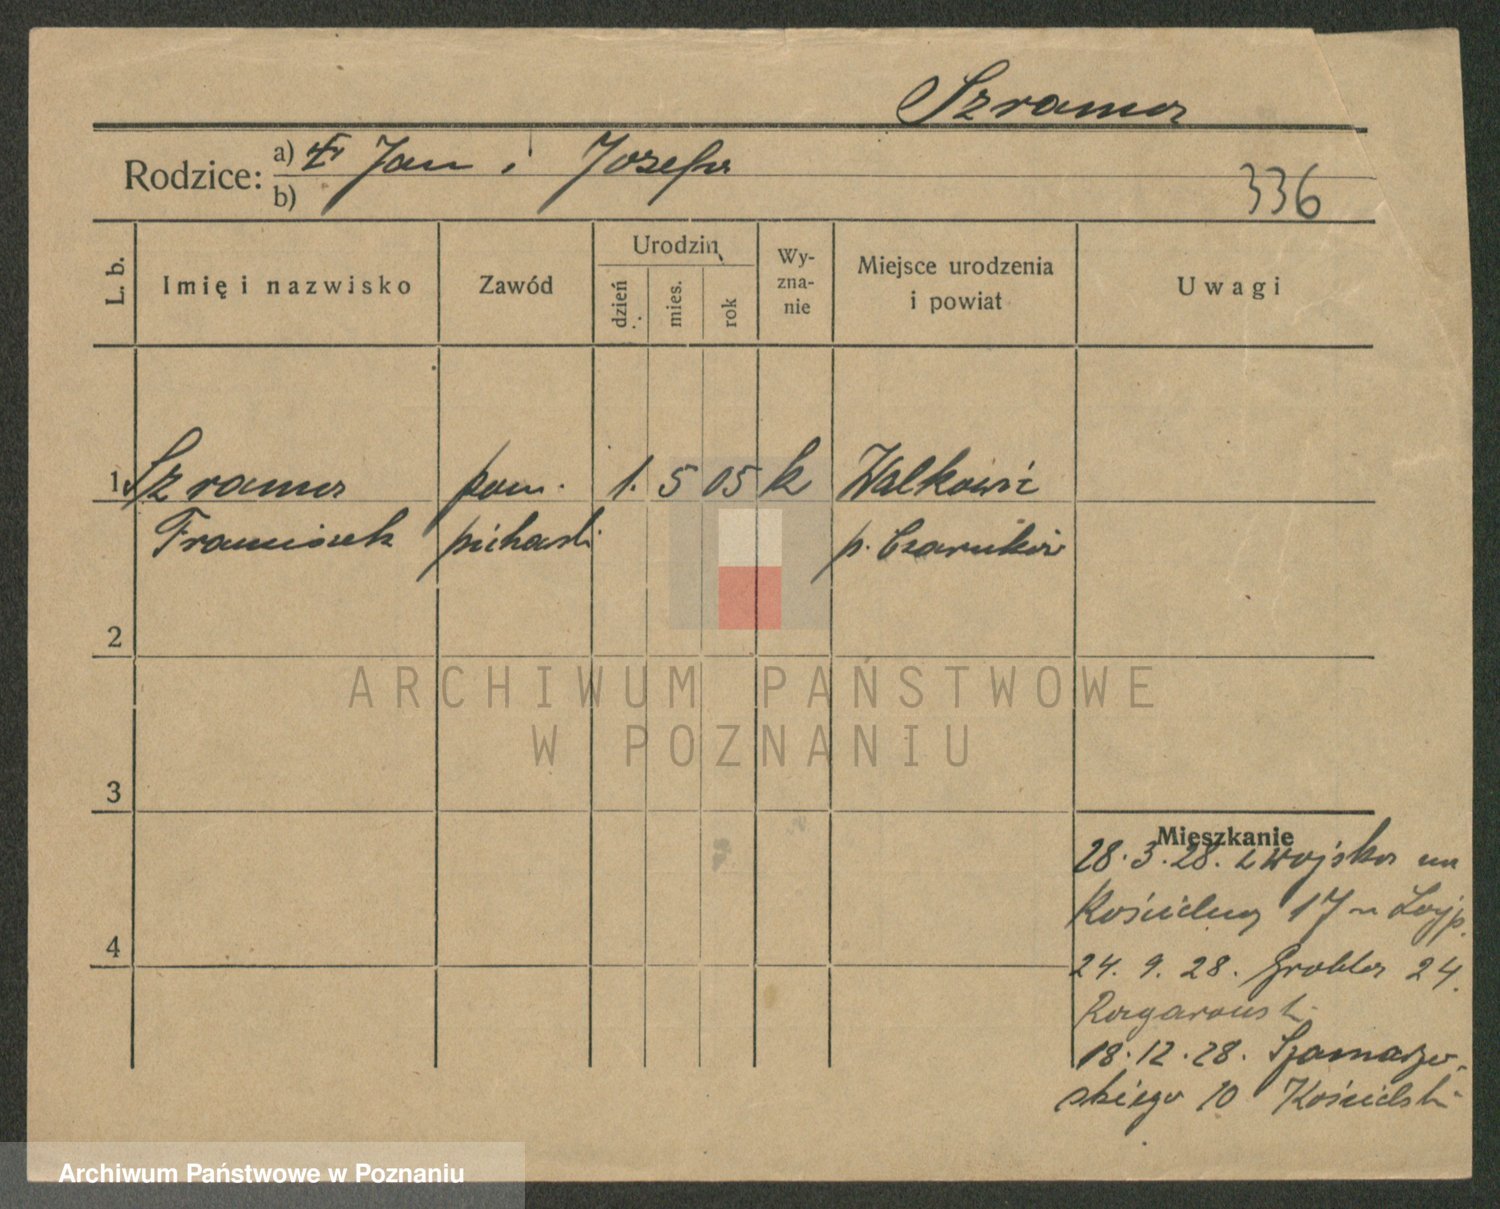 Szrama
Rodzice: a) Jan i Józefa
b)
336
L. b.
Imię i nazwisko
Zawód
Urodzin
dzień
mies.
rok
Wy-
zna-
nie
Miejsce urodzenia
i powiat
Uwagi
1 Szrama pom. 1. 5 05 k Walkowic
Franciszek piekarski p. Czarnków
2
3
4
Mieszkanie
28. 3. 28. z wojska na
Kościelną 17
24. 9. 28. Grobla 24.
18. 12. 28. Szamarzew-
skiego 10 Kościelski
ARCHIWUM PAŃSTWOWE
W POZNANIU
Archiwum Państwowe w Poznaniu